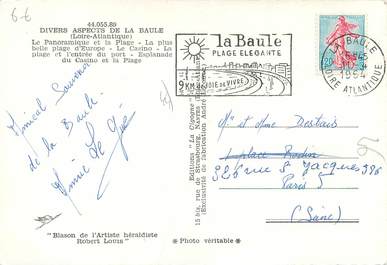 6-6
44.055.89
DIVERS ASPECTS DE LA BAULE
(Loire-Atlantique)
Le Panoramique et la Plage - La plus
belle plage d'Europe - Le Casino - La
plage et l'entrée du port - Esplanade
du Casino et la Plage
Amical Souvenir
de la Baule.
Annie Le
"Blason de l'Artiste héraldiste
Robert Louis"
Editions "La Cigogne"
15 bis, rue de Strasbourg, Nantes
(Exclusivité de fabrication André
* Photo véritable *
la Baule
PLAGE ELEGANTE
9 KM DE JOIE DE VIVRE
LA BAULE
1964
LOIRE ATLANTIQUE
Mr et Mme
326 rue St Jacques
Paris 5
(Seine)